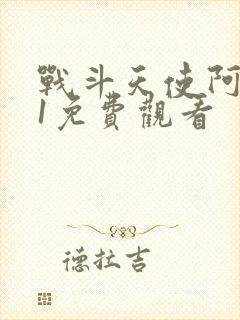 戰斗天使阿
1免費觀看
德拉吉